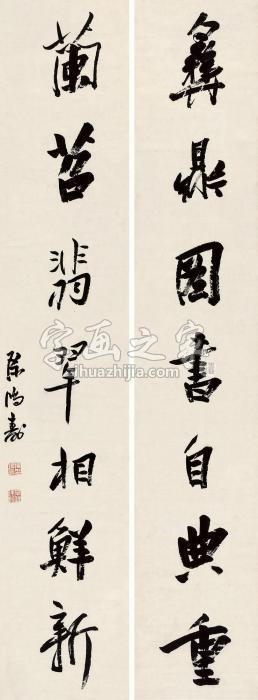 彝鼎圖書自典重
蘭苕翡翠相鮮新
陳鴻壽
字画之家
zihuazhijia.com